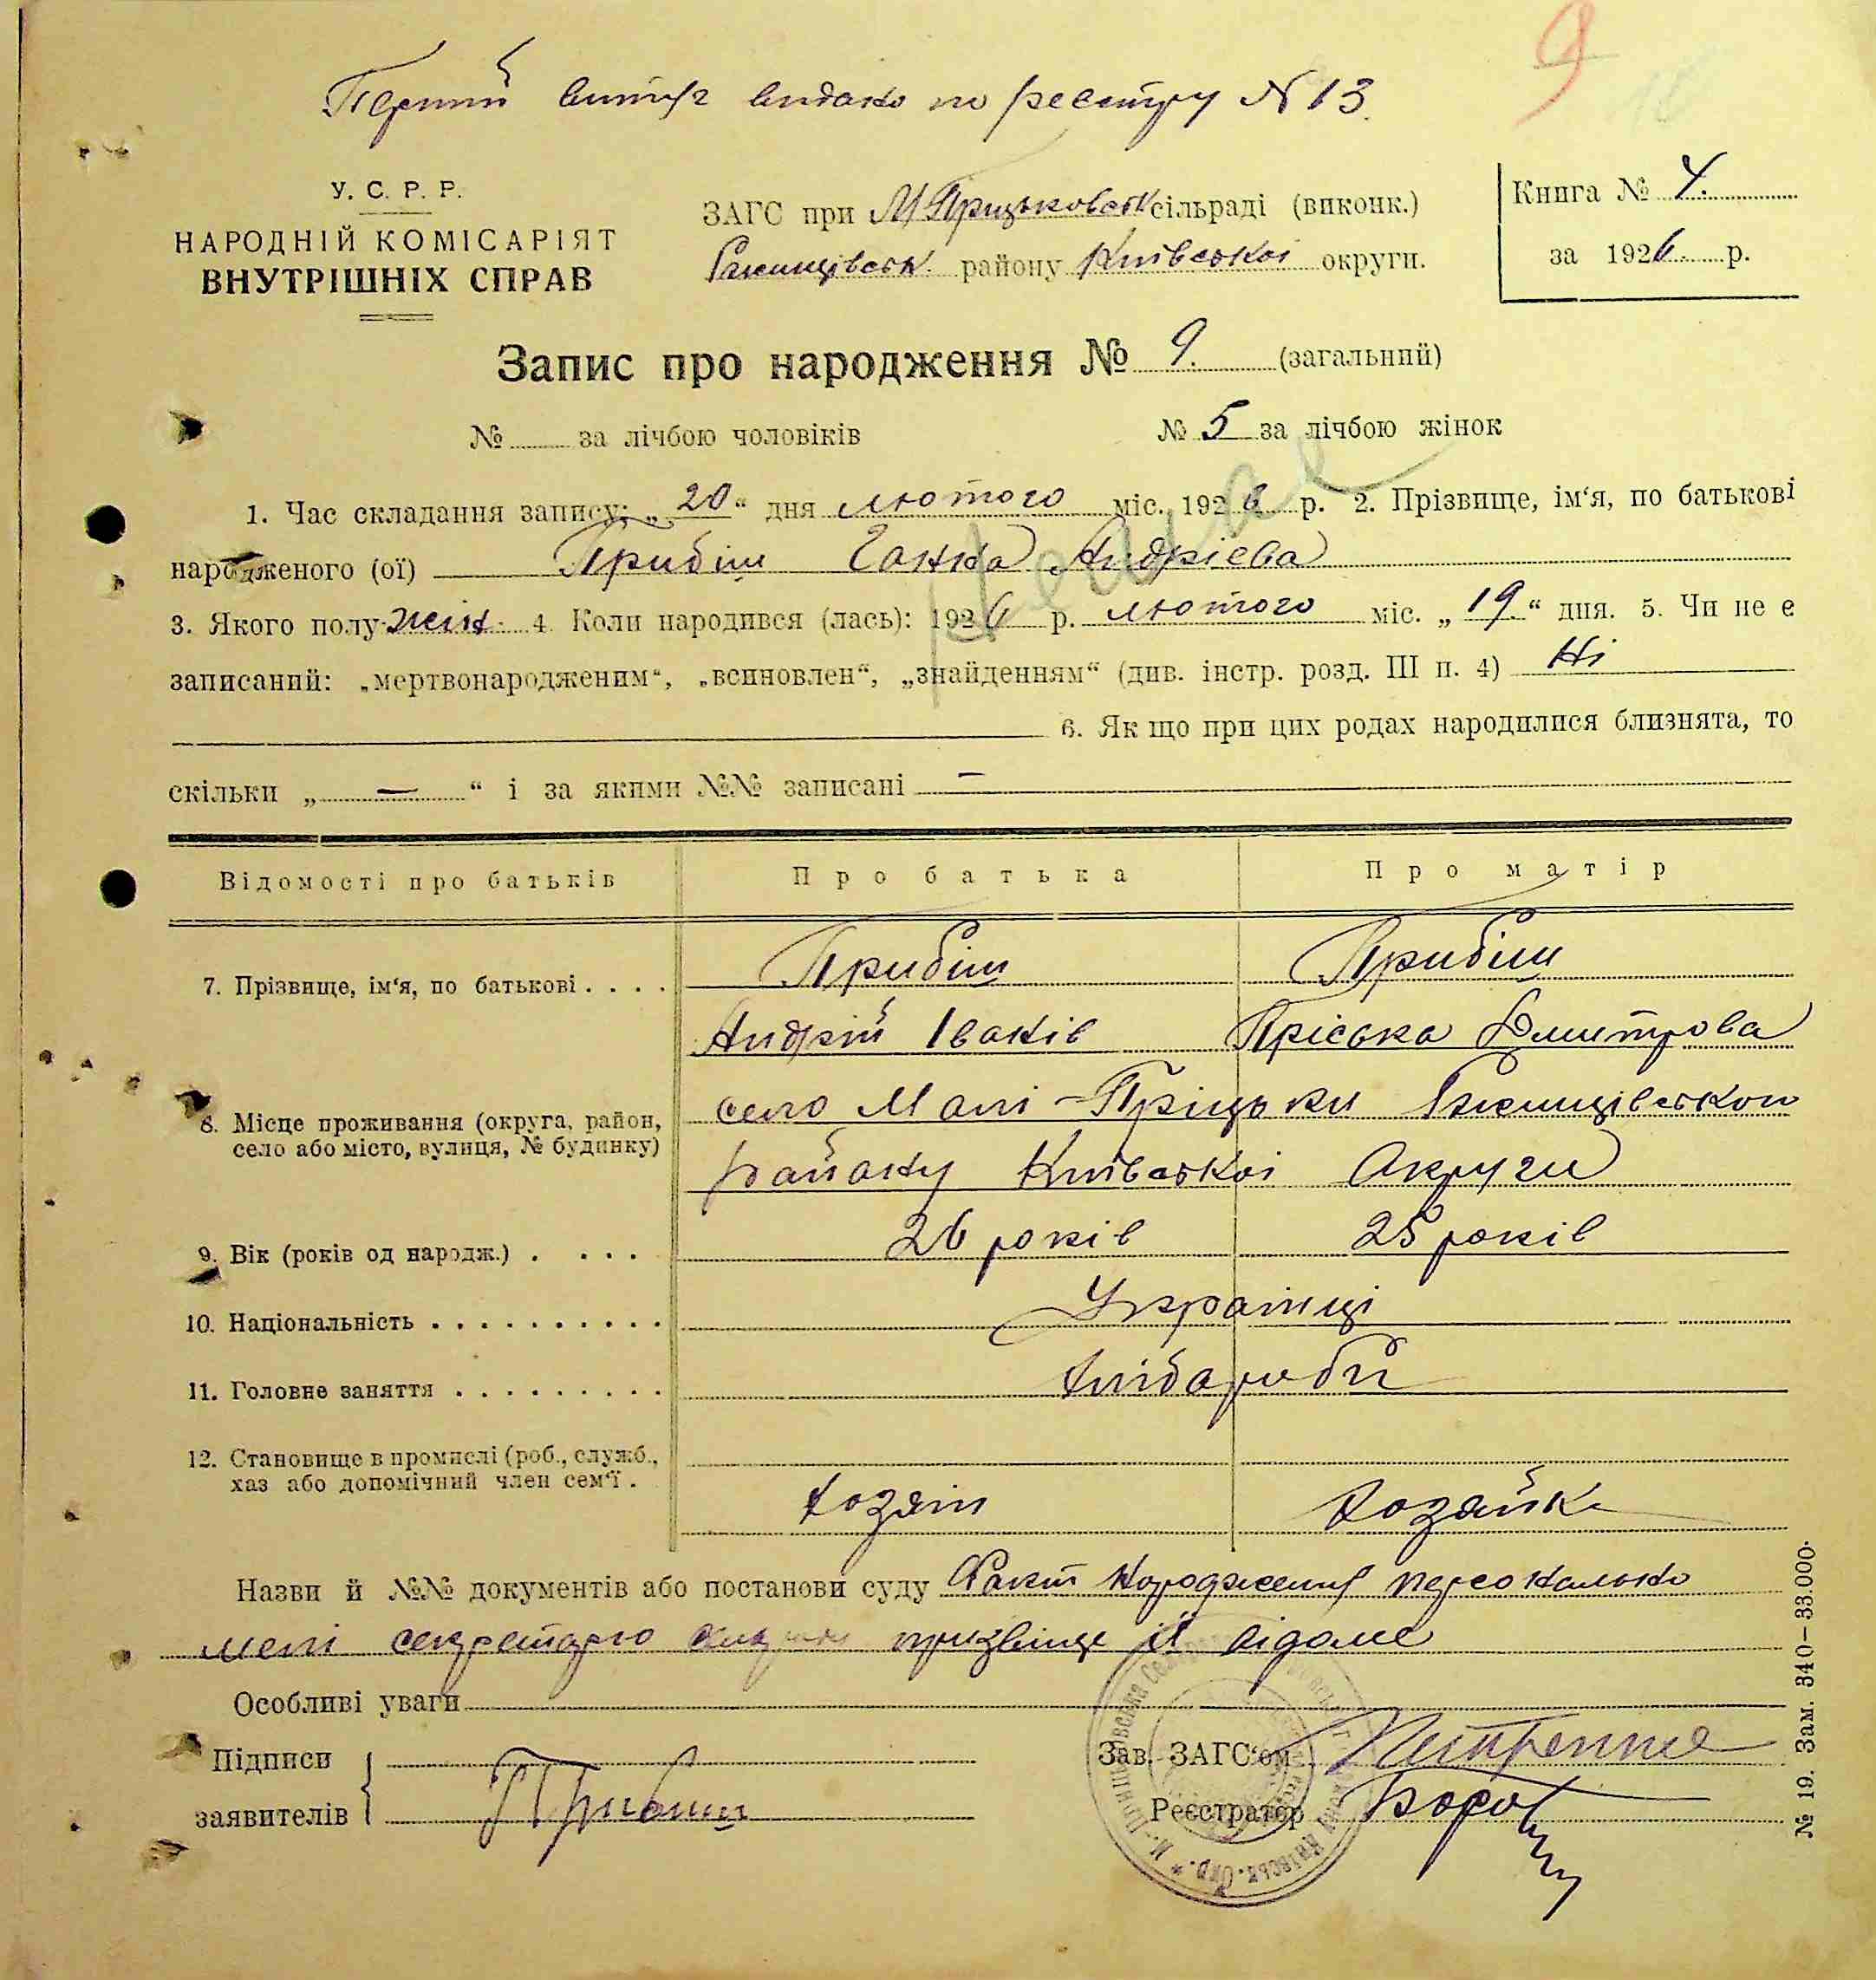 Перший витяг видано по реєстру № 13.
9
У. С. Р. Р.
НАРОДНІЙ КОМІСАРІЯТ
ВНУТРІШНІХ СПРАВ
ЗАГС при М Прицьковськ сільраді (виконк.)
Ржищівськ. району Київської округи.
Книга № 4.
за 1926 р.
Запис про народження № 9. (загальний)
№ за лічбою чоловіків № 5 за лічбою жінок
1. Час складання запису: „20“ дня лютого міс. 1926 р. 2. Прізвище, ім‘я, по батькові
народженого (ої) Прибіш Ганна Андрієва
3. Якого полу жін. 4 Коли народився (лась): 1926 р. лютого міс. „19.“ дня. 5. Чи не є
записаний: „мертвонародженим“, „всиновлен“, „знайденням“ (див. інстр. розд. III п. 4) Ні
6. Як що при цих родах народилися близнята, то
скільки „ — “ і за якими №№ записані —
Відомості про батьків Про батька Про матір
7. Прізвище, ім‘я, по батькові . . . . Прибіш Прибіш
Андрій Іванів Пріська Дмитрова
8. Місце проживання (округа, район,
село або місто, вулиця, № будинку)
село Малі-Пріцьки Ржищівського
району Київської Округи
9. Вік (років од народж.) . . . . 26 років 25 років
10. Національність . . . . . . . . . . Українці
11. Головне заняття . . . . . . . . . Хлібароби
12. Становище в промислі (роб., служб.,
хаз або допомічний член сем‘ї .
Хозяін Хозяйка
Назви й №№ документів або постанови суду Факт народження персонально
мені секретарю призвіще її відоме
Особливі уваги
Підписи
заявителів
Прибиш
Зав. ЗАГС‘ом
Реєстратор
№ 19. Зам. 340–33.000.